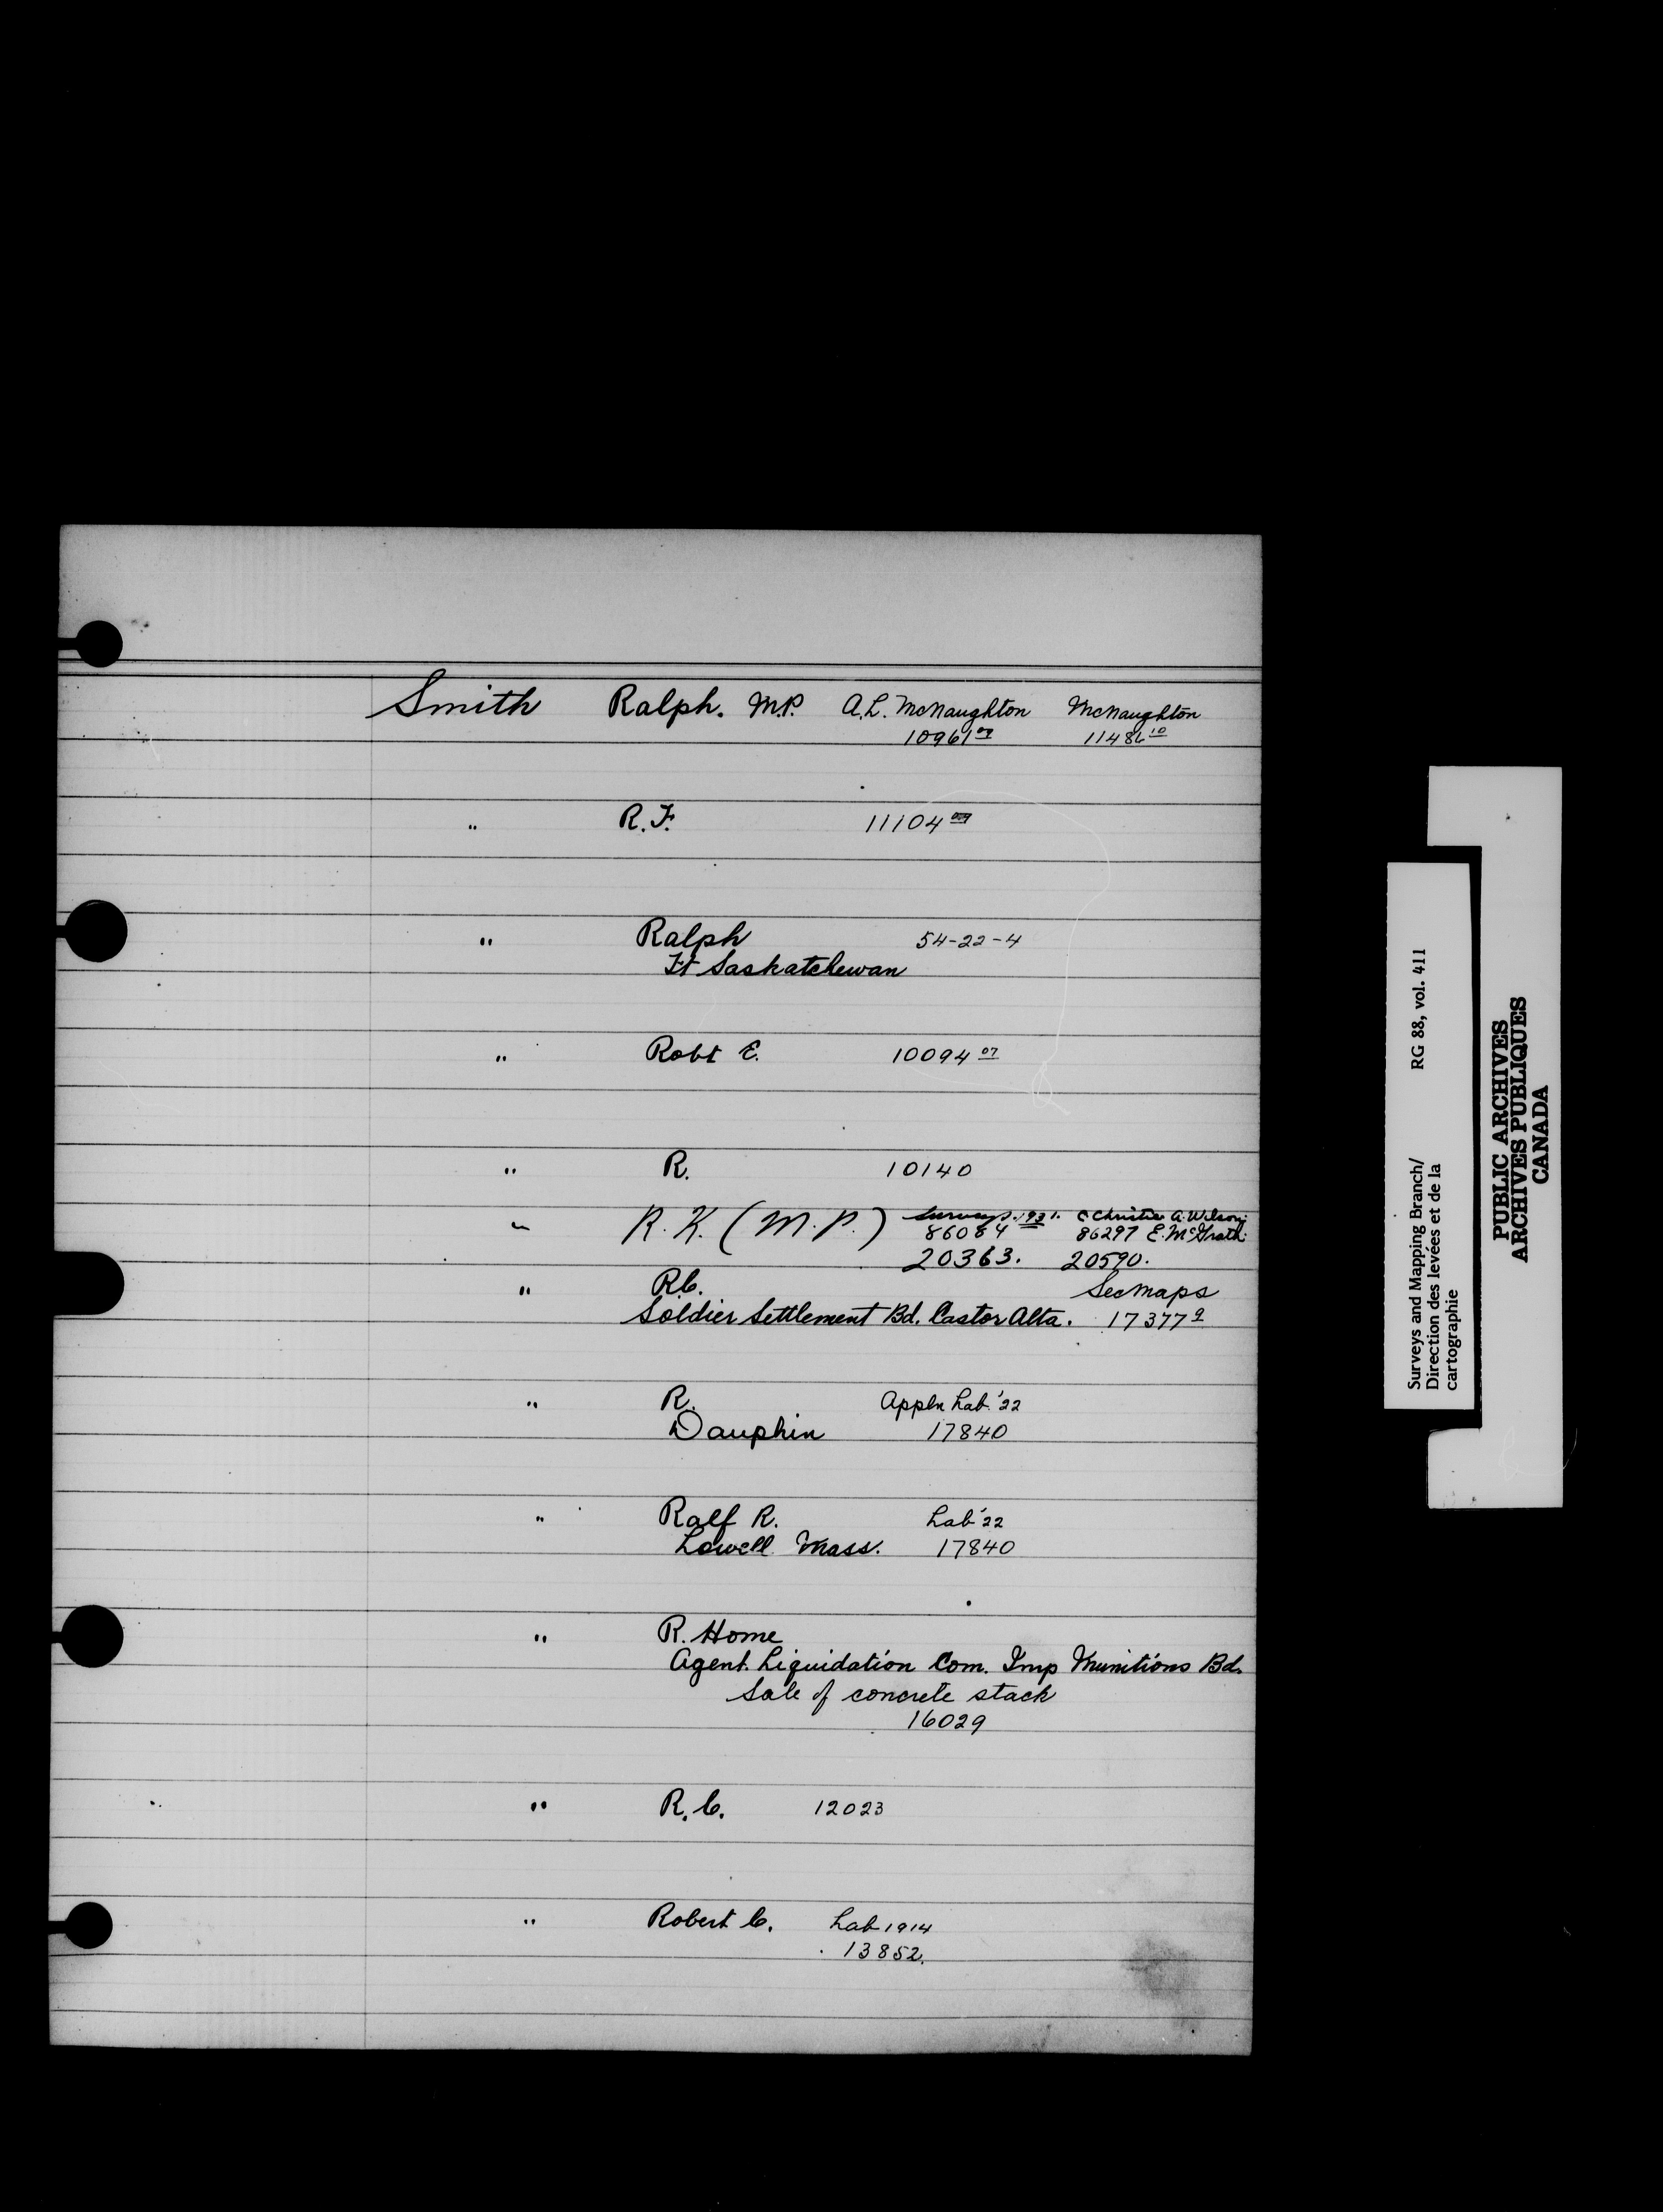 Smith Ralph. M.P. A.L. McNaughton McNaughton
10961 09 11486 10
" R.F. 11104 09
" Ralph 54-22-4
Ft Saskatchewan
" Robt E. 10094 07
" R. 10140
" R.K. (M.P.) Surveys. 1931. C Christie A. Wilson.
86084 86297 E. McGrath.
20363. 20590.
" R.C. Sec maps
Soldier Settlement Bd. Castor Alta. 17377 9
" R. Appln Lab. '22
Dauphin 17840
" Ralf R. Lab '22
Lowell Mass. 17840
" R. Home
Agent. Liquidation Com. Imp Munitions Bd.
Sale of concrete stack
16029
" R.C. 12023
" Robert C. Lab 1914
13852.
Surveys and Mapping Branch/ RG 88, vol. 411
Direction des levées et de la
cartographie
PUBLIC ARCHIVES
ARCHIVES PUBLIQUES
CANADA